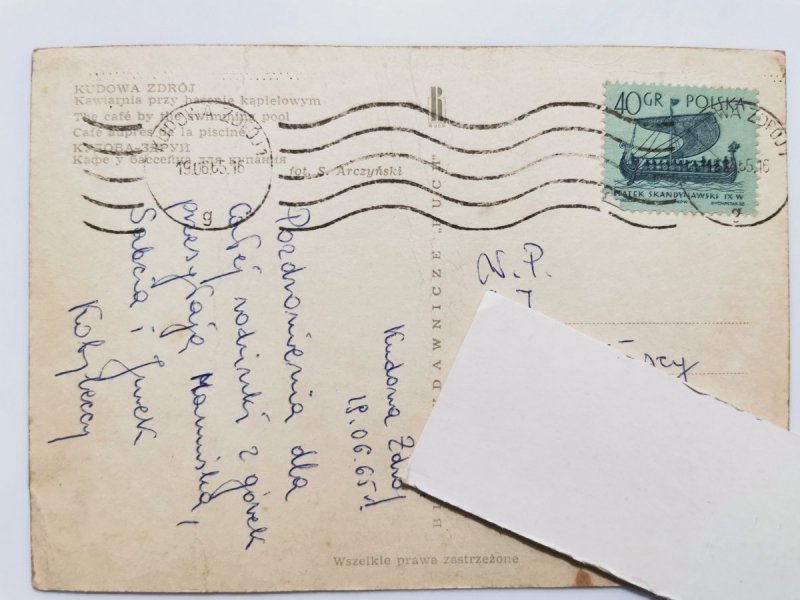 KUDOWA ZDRÓJ
Kawiarnia przy basenie kąpielowym
The café by the swimming pool
Café auprès de la piscine
КУДОВА-ЗДРУЙ
Кафе у бассейна для купания
fot. S. Arczyński
19.06.65.16
g
40 GR POLSKA
STATEK SKANDYNAWSKI IX W
OWA ZDRÓJ 1
65.16
g
Kudowa Zdrój
19.06.65 r.
Pozdrowienia dla
całej rodzinki z górek
przesyłają Mamusia,
Sabcia i Jurek
Kobyłeccy
N.P.
DAWNICZE "RUCH"
Wszelkie prawa zastrzeżone